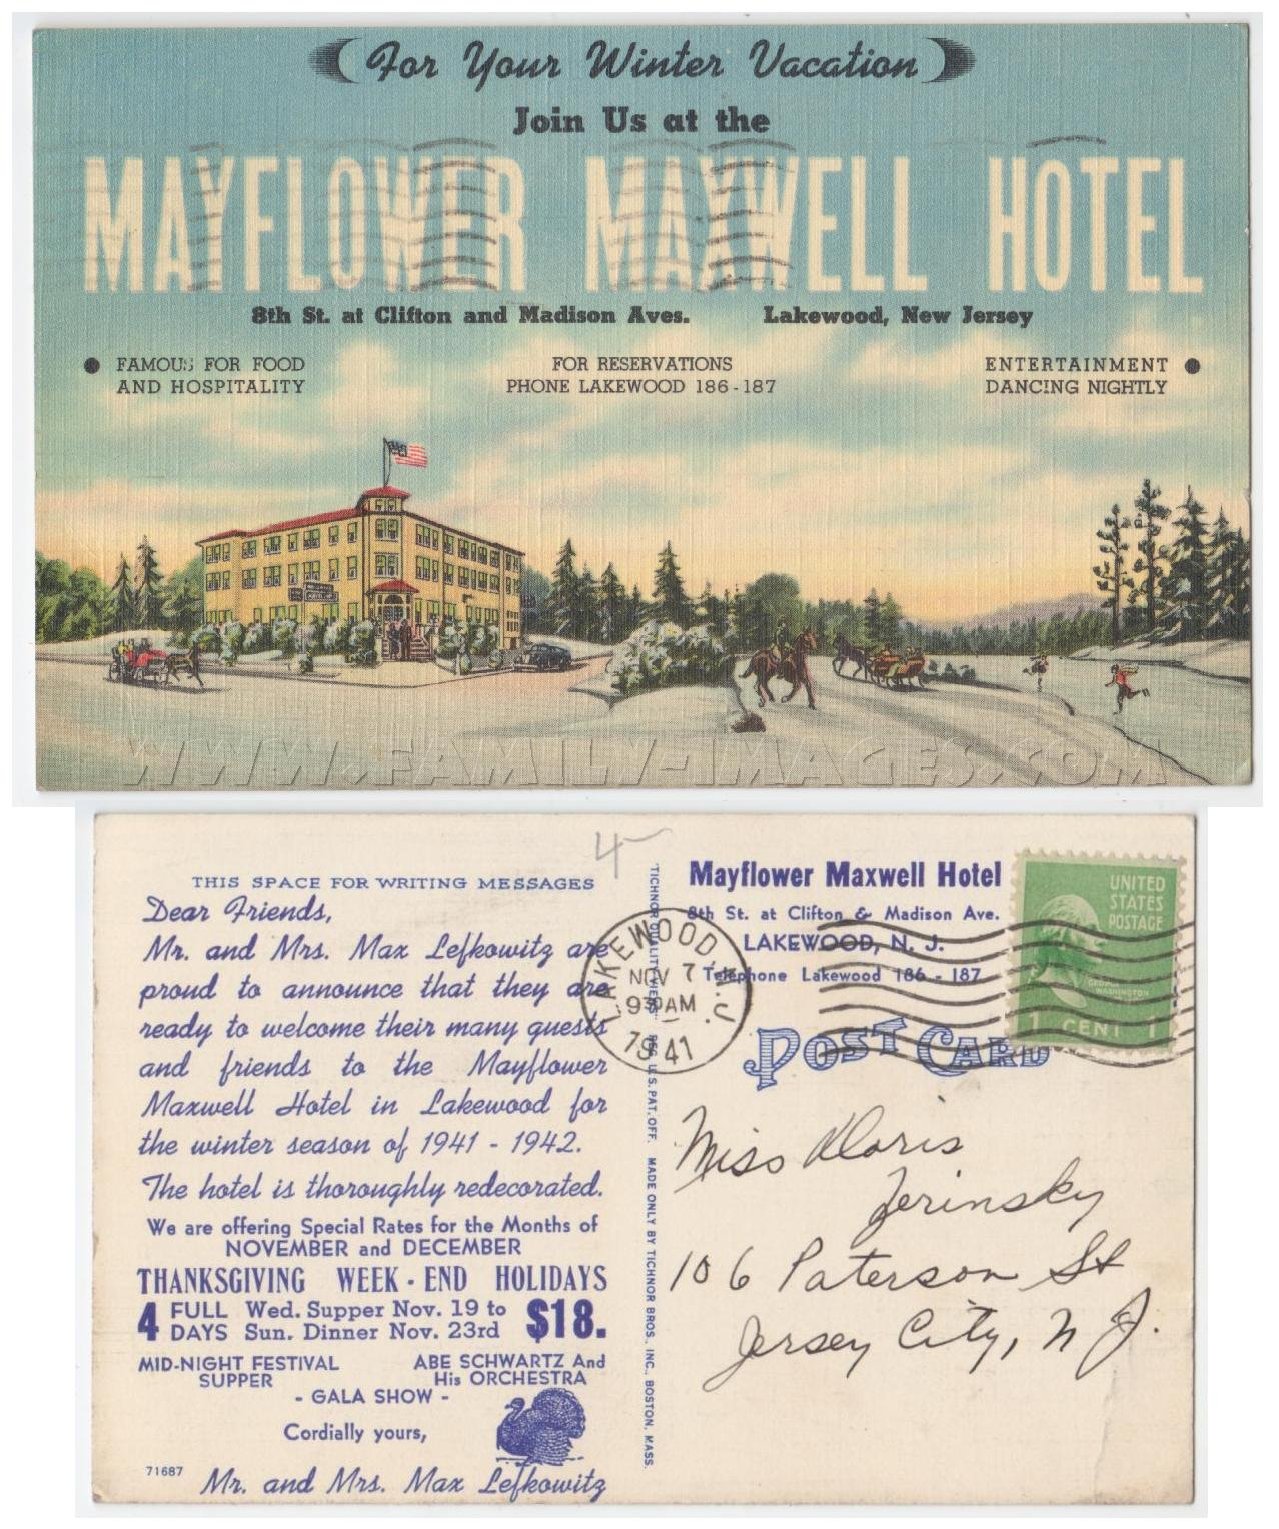 For Your Winter Vacation
Join Us at the
MAYFLOWER MAXWELL HOTEL
8th St. at Clifton and Madison Aves. Lakewood, New Jersey
FAMOUS FOR FOOD
AND HOSPITALITY
FOR RESERVATIONS
PHONE LAKEWOOD 186-187
ENTERTAINMENT
DANCING NIGHTLY
WWW.FAMILY-IMAGES.COM
4-
THIS SPACE FOR WRITING MESSAGES
Dear Friends,
Mr. and Mrs. Max Lefkowitz are
proud to announce that they are
ready to welcome their many guests
and friends to the Mayflower
Maxwell Hotel in Lakewood for
the winter season of 1941 - 1942.
The hotel is thoroughly redecorated.
We are offering Special Rates for the Months of
NOVEMBER and DECEMBER
THANKSGIVING WEEK-END HOLIDAYS
4 FULL DAYS
Wed. Supper Nov. 19 to
Sun. Dinner Nov. 23rd
$18.
MID-NIGHT FESTIVAL
SUPPER
ABE SCHWARTZ And
His ORCHESTRA
- GALA SHOW -
Cordially yours,
71687
Mr. and Mrs. Max Lefkowitz
TICHNOR QUALITY VIEWS REG. U.S. PAT. OFF. MADE ONLY BY TICHNOR BROS., INC., BOSTON, MASS.
Mayflower Maxwell Hotel
8th St. at Clifton & Madison Ave.
LAKEWOOD, N. J.
Telephone Lakewood 186 - 187
LAKEWOOD N.J.
NOV 7
930AM
1941
UNITED
STATES
POSTAGE
GEORGE
WASHINGTON
1 CENT 1
POST CARD
Miss Doris
Jerinsky
106 Paterson St
Jersey City, N J.